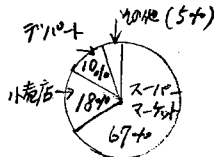 その他 (5%)
デパート
10%
小売店
18%
スーパー
マーケット
67%